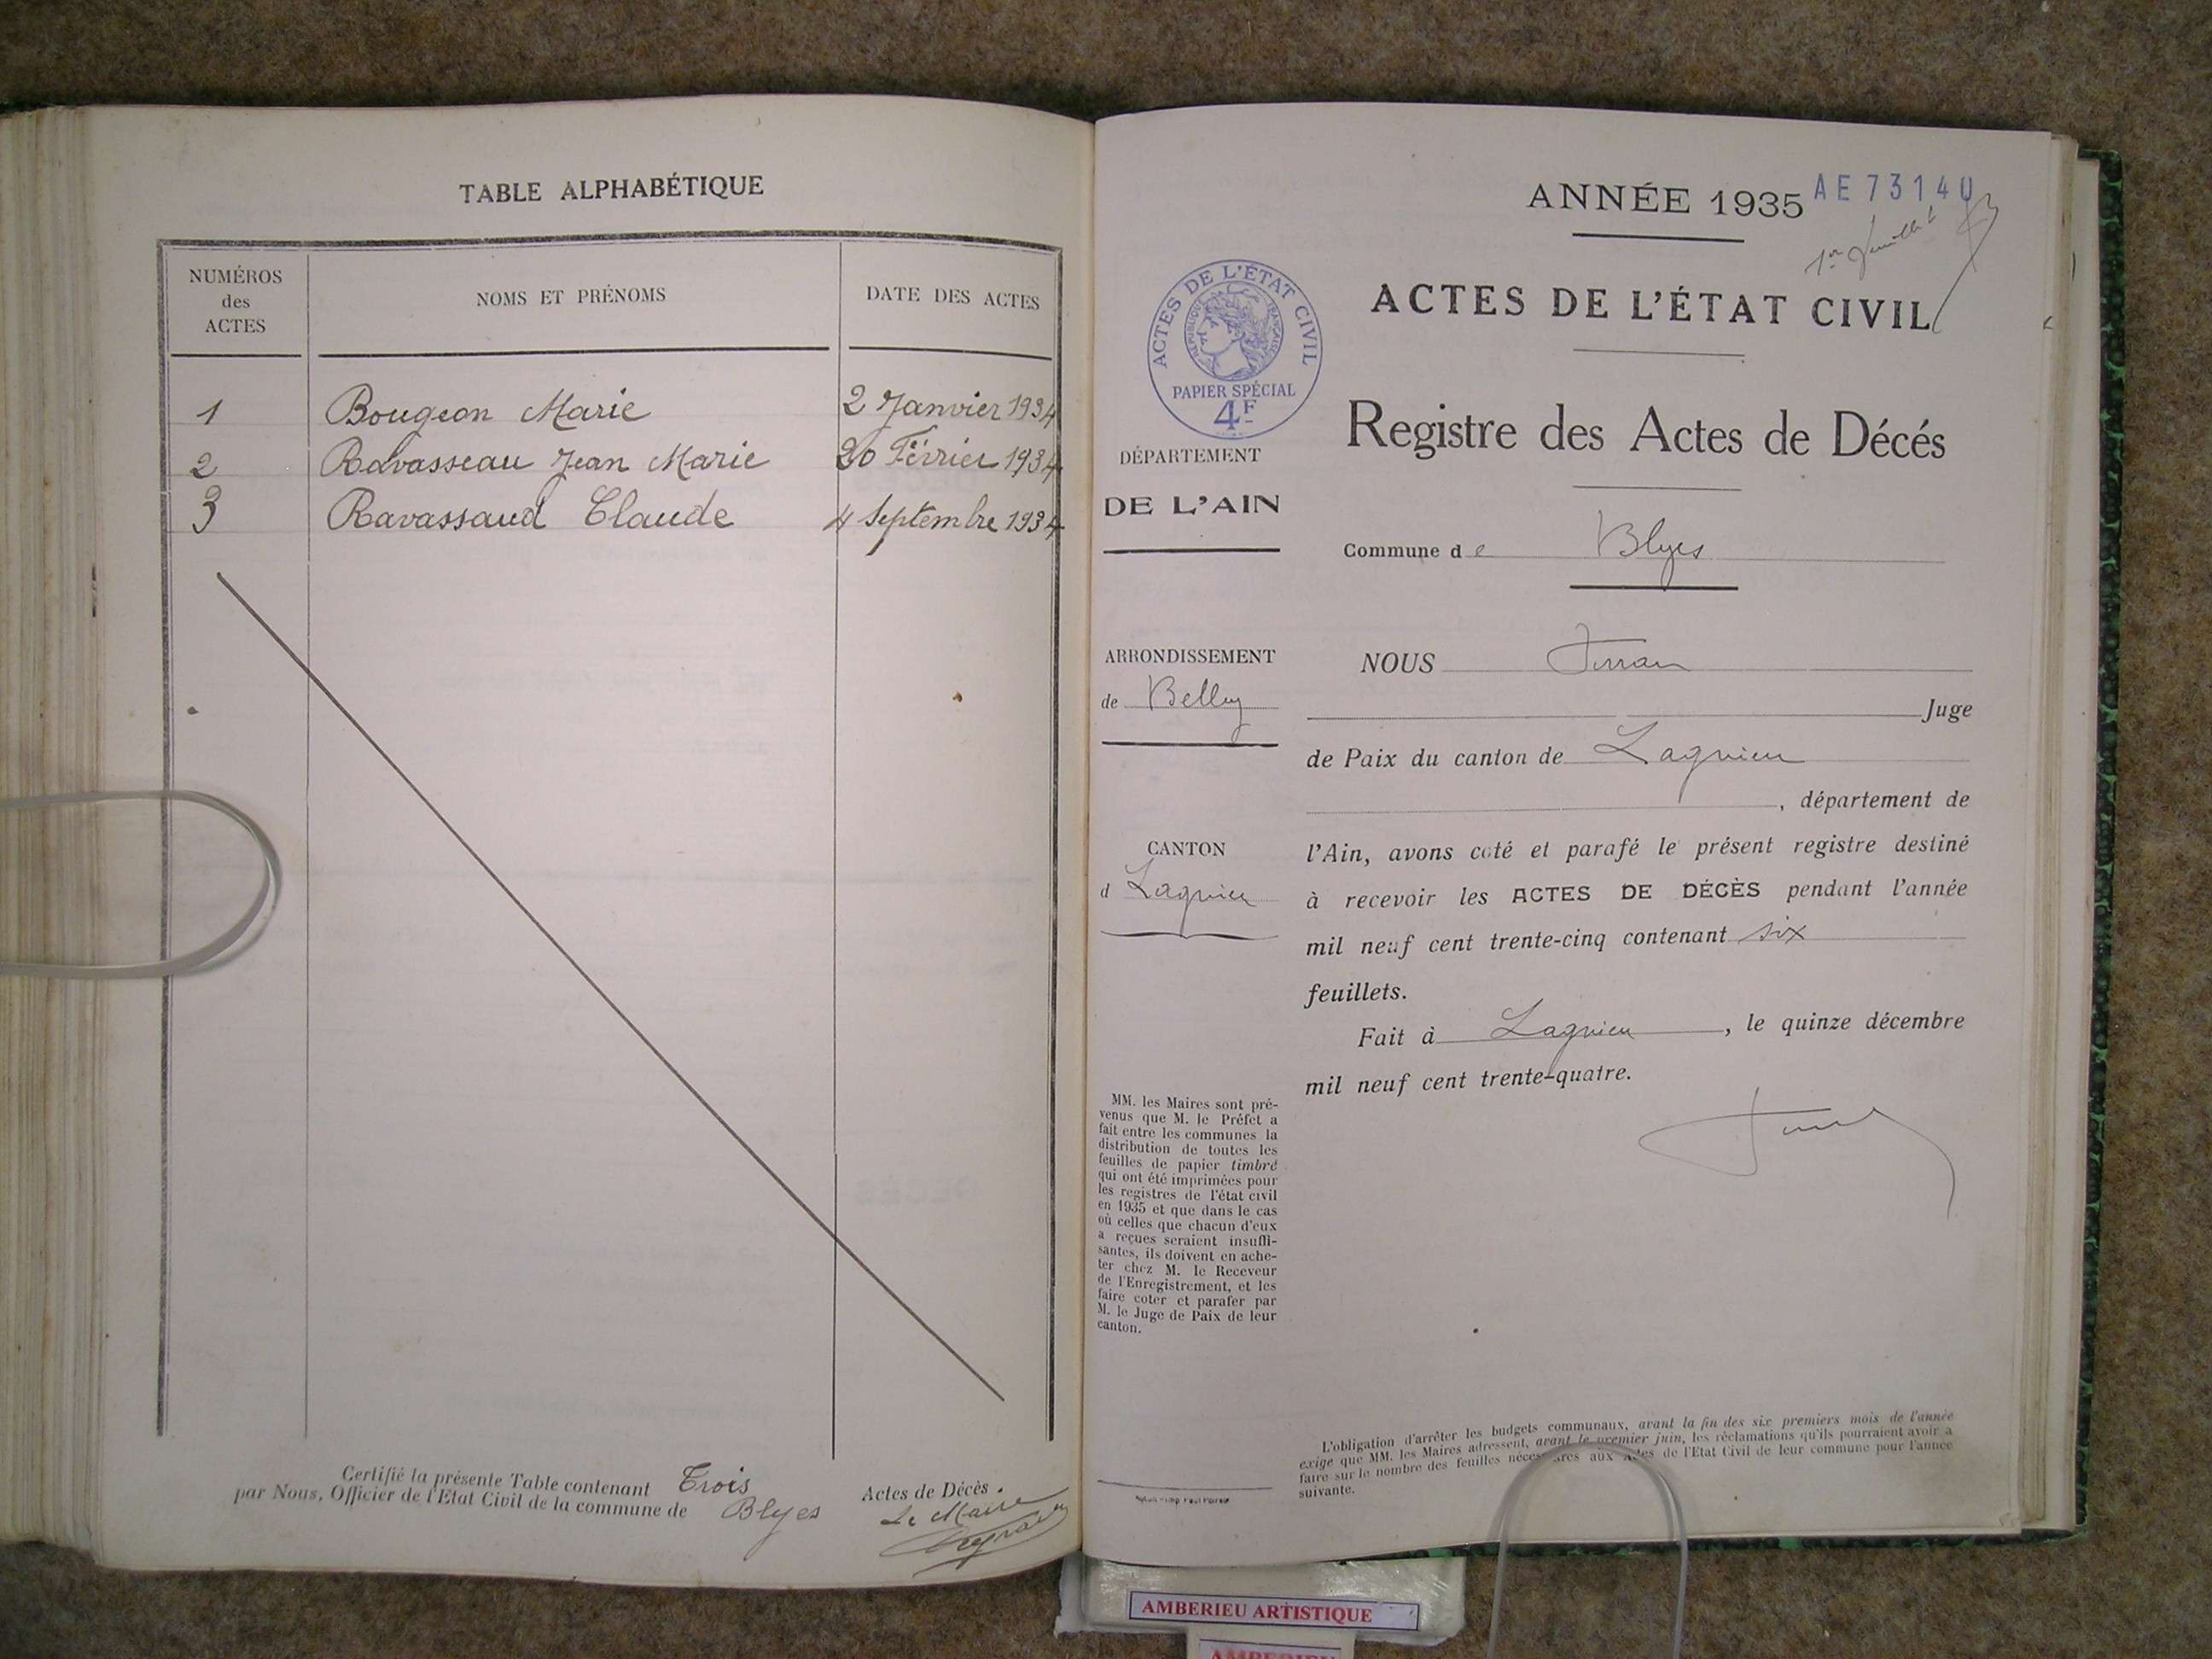 TABLE ALPHABÉTIQUE
NUMÉROS
des
ACTES
NOMS ET PRÉNOMS
DATE DES ACTES
1 Bougeon Marie 2 Janvier 1934
2 Ravasseau Jean Marie 20 Février 1934
3 Ravassaud Claude 4 Septembre 1934
Certifié la présente Table contenant Trois Actes de Décès.
par Nous, Officier de l'Etat Civil de la commune de Blyes
Le Maire
ANNÉE 1935
AE 73140
1er feuillet
ACTES DE L'ÉTAT CIVIL
ACTES DE L'ÉTAT CIVIL
RÉPUBLIQUE FRANÇAISE
PAPIER SPÉCIAL
4F
Registre des Actes de Décés
DÉPARTEMENT
DE L'AIN
Commune de Blyes
ARRONDISSEMENT
de Belley
CANTON
d Lagnieu
NOUS
Juge
de Paix du canton de Lagnieu
, département de
l'Ain, avons coté et parafé le présent registre destiné
à recevoir les ACTES DE DÉCÈS pendant l'année
mil neuf cent trente-cinq contenant six
feuillets.
Fait à Lagnieu, le quinze décembre
mil neuf cent trente-quatre.
MM. les Maires sont pré-
venus que M. le Préfet a
fait entre les communes la
distribution de toutes les
feuilles de papier timbré
qui ont été imprimées pour
les registres de l'état civil
en 1935 et que dans le cas
où celles que chacun d'eux
a reçues seraient insuffi-
santes, ils doivent en ache-
ter chez M. le Receveur
de l'Enregistrement, et les
faire coter et parafer par
M. le Juge de Paix de leur
canton.
L'obligation d'arrêter les budgets communaux, avant la fin des six premiers mois de l'année
exige que MM. les Maires adressent, avant le premier juin, les réclamations qu'ils pourraient avoir à
faire sur le nombre des feuilles nécessaires aux Actes de l'Etat Civil de leur commune pour l'année
suivante.
AMBERIEU ARTISTIQUE
AMBERIEU